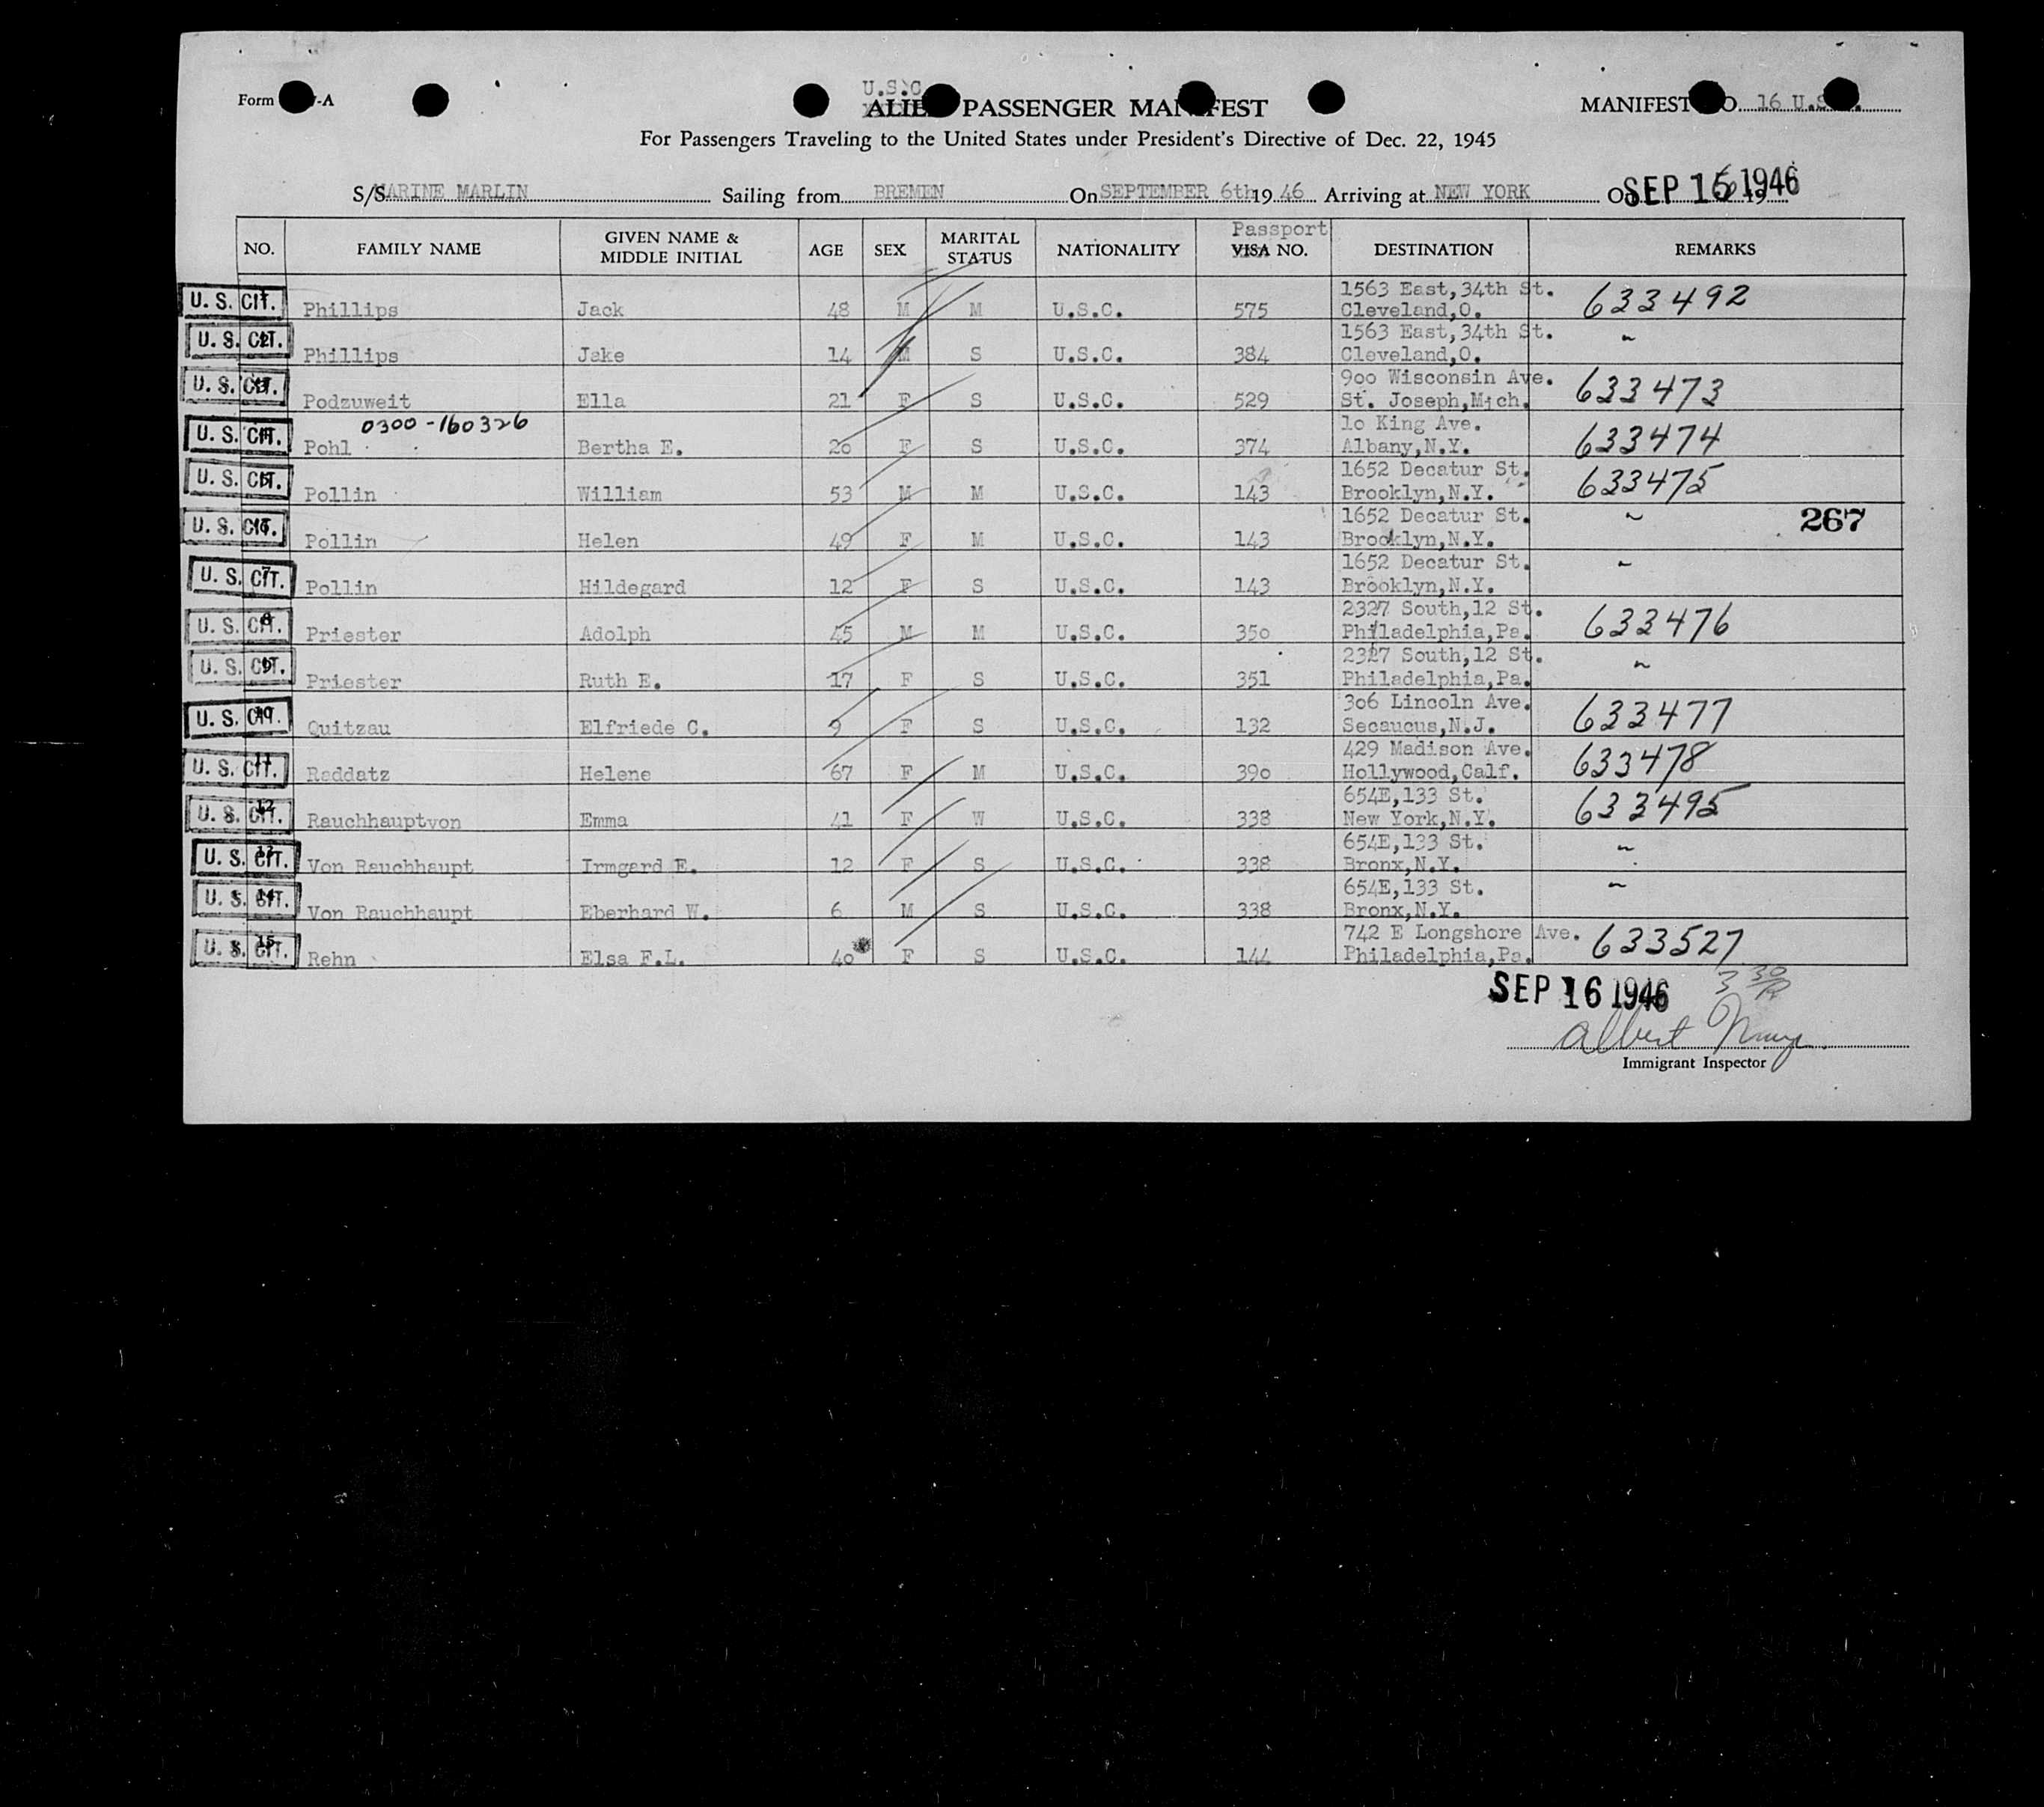 U.S.C.
Form -A ALIEN PASSENGER MANIFEST MANIFEST NO. 16 U.S.
For Passengers Traveling to the United States under President's Directive of Dec. 22, 1945
S/S MARINE MARLIN Sailing from BREMEN On SEPTEMBER 6th 19 46 Arriving at NEW YORK On SEP 1946 19
Passport
NO. FAMILY NAME GIVEN NAME & MIDDLE INITIAL AGE SEX MARITAL STATUS NATIONALITY VISA NO. DESTINATION REMARKS
U. S. CIT. 1 Phillips Jack 48 M M U.S.C. 575 1563 East,34th St. Cleveland,O. 633492
U. S. CIT. 2 Phillips Jake 14 M S U.S.C. 384 1563 East,34th St. Cleveland,O. ~
U. S. CIT. 3 Podzuweit Ella 21 F S U.S.C. 529 900 Wisconsin Ave. St. Joseph,Mich. 633473
0300-160326
U. S. CIT. 4 Pohl Bertha E. 20 F S U.S.C. 374 10 King Ave. Albany,N.Y. 633474
U. S. CIT. 5 Pollin William 53 M M U.S.C. 143 1652 Decatur St. Brooklyn,N.Y. 633475
U. S. CIT. 6 Pollin Helen 49 F M U.S.C. 143 1652 Decatur St. Brooklyn,N.Y. ~ 267
U. S. CIT. 7 Pollin Hildegard 12 F S U.S.C. 143 1652 Decatur St. Brooklyn,N.Y. ~
U. S. CIT. 8 Priester Adolph 45 M M U.S.C. 350 2327 South,12 St. Philadelphia,Pa. 633476
U. S. CIT. 9 Priester Ruth E. 17 F S U.S.C. 351 2327 South,12 St. Philadelphia,Pa. ~
U. S. CIT. 10 Quitzau Elfriede C. 9 F S U.S.C. 132 306 Lincoln Ave. Secaucus,N.J. 633477
U. S. CIT. 11 Raddatz Helene 67 F M U.S.C. 390 429 Madison Ave. Hollywood,Calf. 633478
U. S. CIT. 12 Rauchhauptvon Emma 41 F W U.S.C. 338 654E,133 St. New York,N.Y. 633495
U. S. CIT. 13 Von Rauchhaupt Irmgard E. 12 F S U.S.C. 338 654E,133 St. Bronx,N.Y. ~
U. S. CIT. 14 Von Rauchhaupt Eberhard W. 6 M S U.S.C. 338 654E,133 St. Bronx,N.Y. ~
U. S. CIT. 15 Rehn Elsa F.L. 40 F S U.S.C. 144 742 E Longshore Ave. Philadelphia,Pa. 633527
SEP 16 1946
Albert
Immigrant Inspector